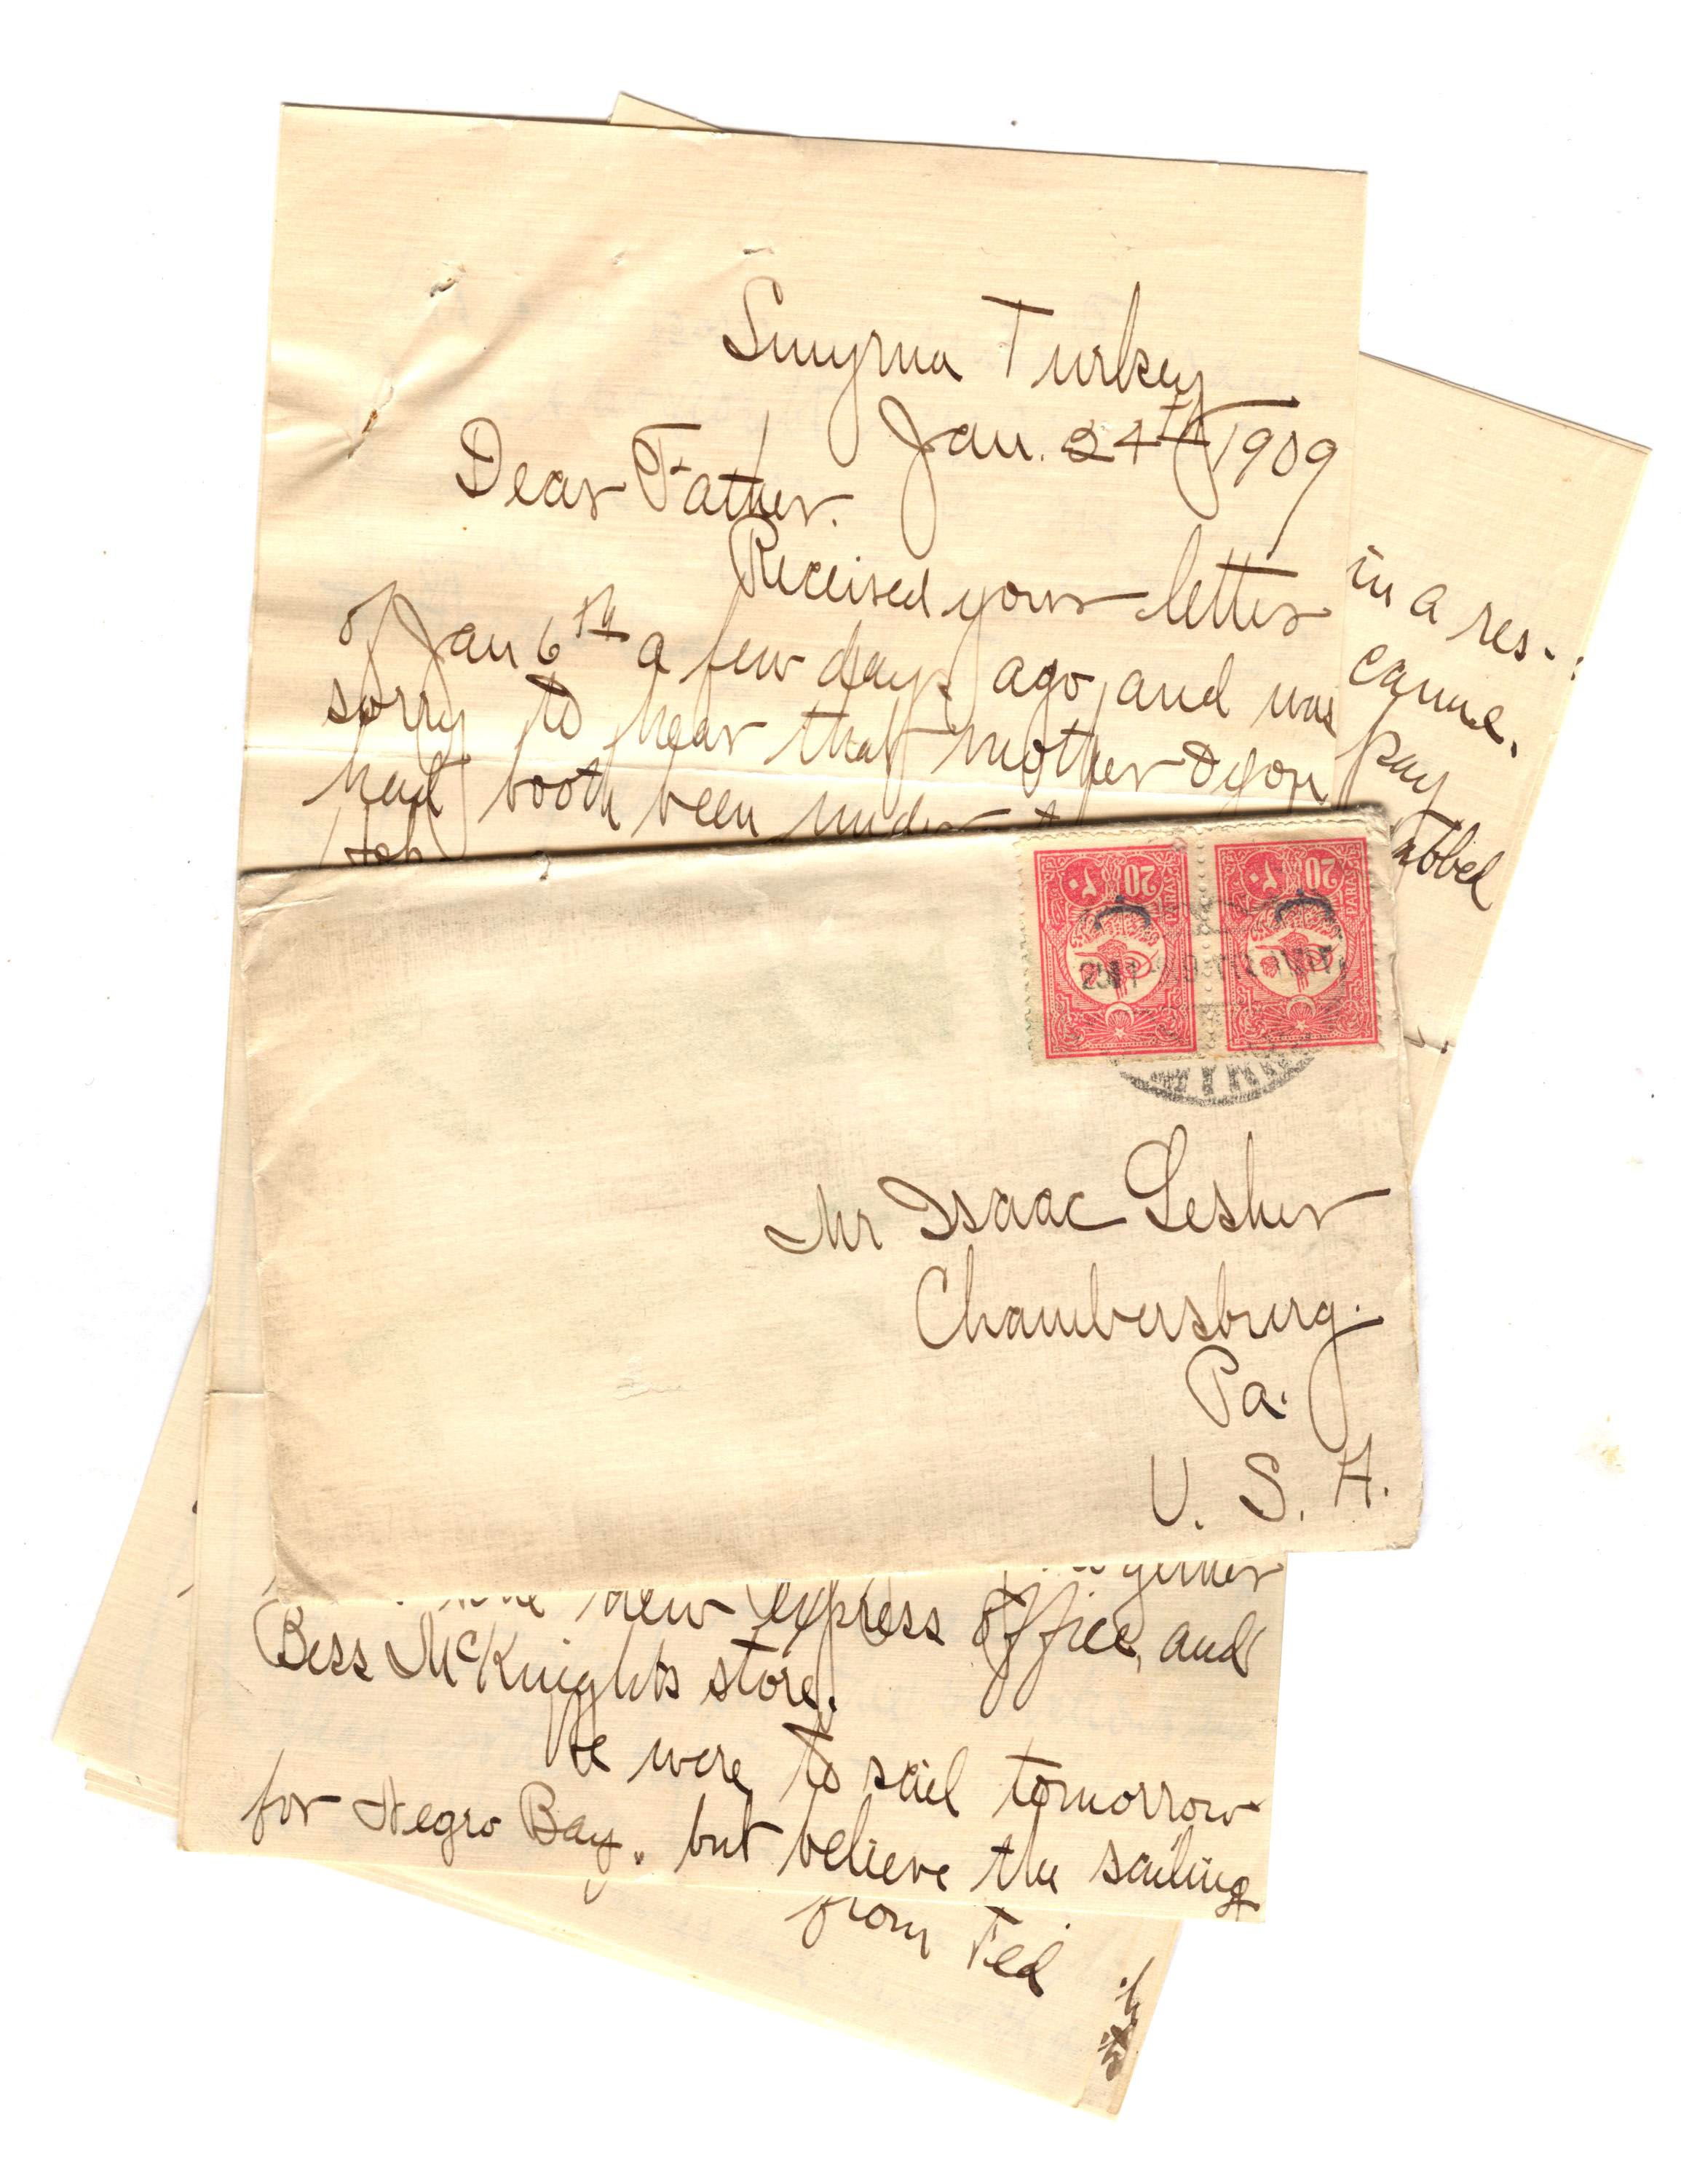 Smyrna Turkey
Jan. 24th 1909
Dear Father.
Received your letter
of Jan 6th a few days ago, and was
sorry to hear that mother & you
had both been under
in a res-
came.
pay
20 20
PARAS PARAS
٢٠ ٢٠
Mr Isaac Lesher
Chambersburg.
Pa.
U. S. A.
new express office, and
Bess McKnights store.
We were to sail tomorrow
for Negro Bay, but believe the sailing
from Ted